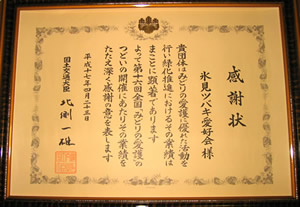 感謝状
氷見ツバキ愛好会様
貴団体はみどりの愛護に優れた活動を
行い緑化推進におけるその業績は
まことに顕著であります
よって第十六回全国「みどりの愛護」の
つどいの開催にあたりその業績を
たたえ深く感謝の意を表します
平成十七年四月二十三日
国土交通大臣 北側一雄